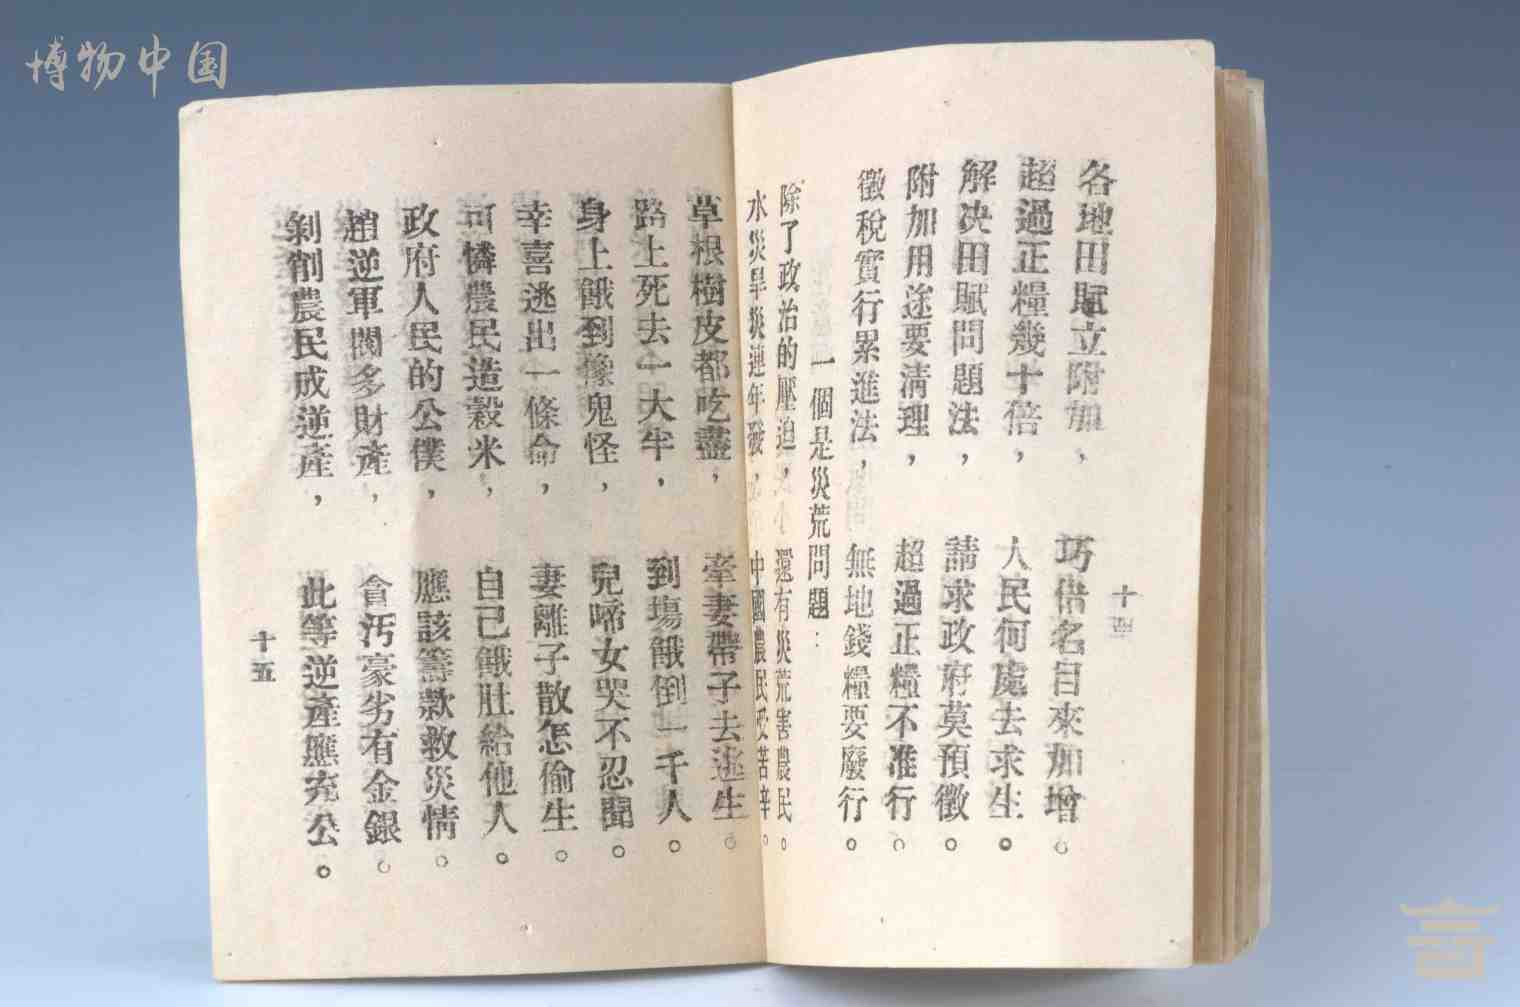 博物中国
十四
各地田賦立附加，巧借名目來加增。
超過正糧幾十倍，人民何處去求生。
解決田賦問題法，請求政府莫預徵。
附加用途要清理，超過正糧不准行。
徵稅實行累進法，無地錢糧要廢行。
一個是災荒問題：
除了政治的壓迫，還有災荒害農民。
水災旱災連年發，中國農民受苦辛。
草根樹皮都吃盡，牽妻帶子去逃生。
路上死去一大半，到塲餓倒一千人。
身上餓到像鬼怪，兒啼女哭不忍聞。
幸喜逃出一條命，妻離子散怎偷生。
可憐農民造穀米，自己餓肚給他人。
政府人民的公僕，應該籌款救災情。
趙逆軍閥多財產，貪汚豪劣有金銀。
剝削農民成逆產，此等逆產應充公。
十五